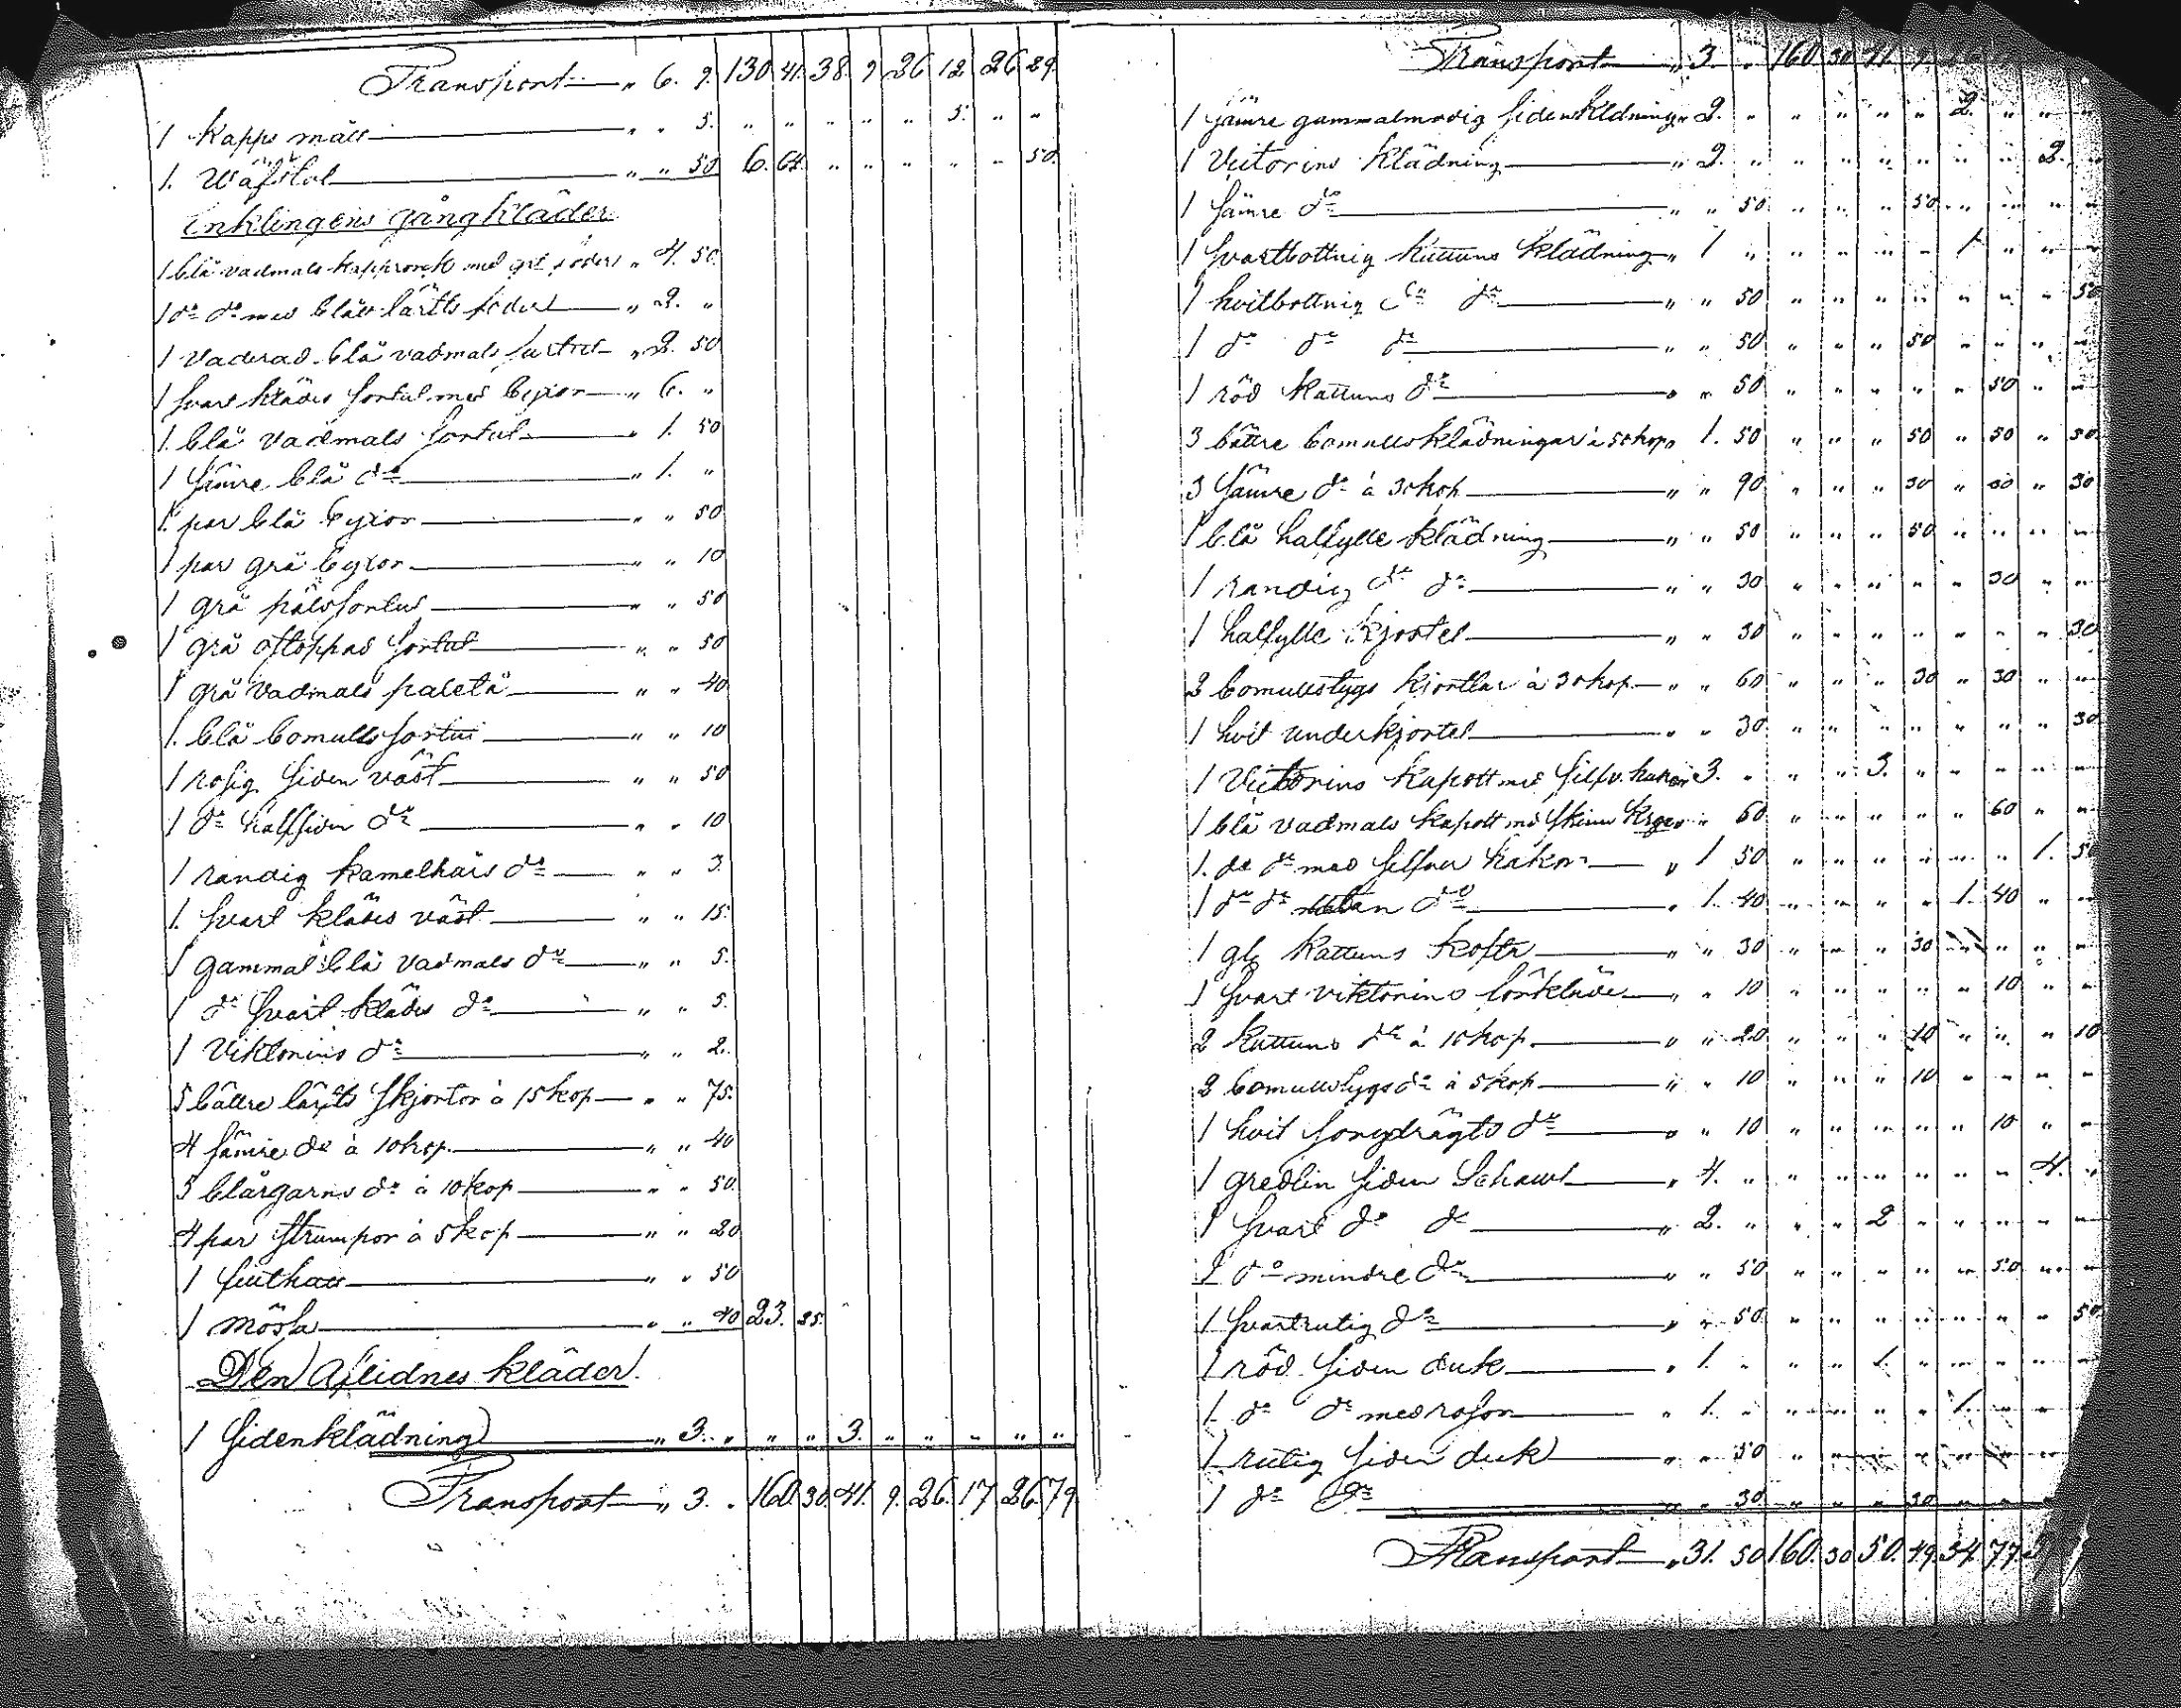 Transport " 6. 9. 130 41. 38. 9. 26 12 26 29.
1 Kapps mått " " 5. " " " " " 5. " "
1. Wäfstol " " 50 6. 64. " " " " " 50.
Enklingens gångkläder
1 blå vadmals kapprock med grå foder " 4. 50.
1 do do med blått lärfts foder " 2. "
1 vaderad blå vadmals " 2. 50
1 svart klädes sortut med byxor " 6. "
1. blå vadmals sortut " 1. 50
1 sämre blå do " 1. "
1. par blå byxor " " 50
1 par grå byxor " " 10
1 grå pälssortut " " 50
1 grå ostoppad sortut " " 50
1 grå vadmals paletå " " 40
1. blå bomulls sortut " " 10
1 rosig siden väst " " 50
1 do halfsiden do " " 10
1 randig kamelhårs do " " 3.
1. svart klädes väst " " 15.
1 gammal blå vadmals do " " 5.
1 do svart klädes do " " 5.
1 Viktorins do " " 2.
5 bättre lärfts skjortor à 15 kop " " 75.
4 sämre do à 10 kop. " " 40
5 blårgarns do à 10 kop " " 50.
4 par strumpor à 5 kop " " 20
1 " " 50
1 mössa " " 40 23. 25.
Den Aflidnes kläder.
1 Sidenklädning " 3. " " " 3. " " " " "
Transport " 3. " 160. 30. 41. 9. 26. 17 26 79
Transport " 3. " 160. 30 41. 9.
1 sämre gammalmodig sidenkldning " 2. " " " " " 2. " " "
1 Victorins klädning " 2. " " " " " " " 2. "
1 sämre do " " 50 " " " 50 " " " "
1 svartbottnig kattuns klädning " 1 " " " " " 1 " " "
1 hvitbottnig do do " " 50 " " " " " " " 50
1 do do do " " 50 " " " 50 " " " "
1 röd kattuns do " " 50 " " " " " 50 " "
3 bättre bomullsklädningar à 50 kop " 1. 50 " " " 50 " 50 " 50
3 sämre do à 30 kop " " 90 " " " 30 " 30 " 30
1 blå halfylle klädning " " 50 " " " 50 " " " "
1 randig do do " " 30 " " " " " 30 " "
1 halfylle kjortel " " 30 " " " " " " " 30
2 bomullstygs kjortlar à 30 kop " " 60 " " " 30 " 30 " "
1 hvit underkjortel " " 30. " " " " " " " 30
1 Victorins kapott med silfv. hakar 3. " " " 3. " " " " "
1 blå vadmals kapott md skinn krage " 60 " " " " " 60 " "
1. do do med silfver hakar " 1 50 " " " " " " 1. 50
1 do do utan do " 1. 40 " " " " 1. 40 " "
1 gl kattuns kofta " " 30 " " " 30 " " " "
1 svart viktorins förkläde " " 10 " " " " " 10 " "
2 kattuns do à 10 kop. " " 20 " " " 10 " " " 10
2 bomullstygs do à 5 kop " " 10 " " " 10 " " " "
1 hvit sorgdrägts do " " 10 " " " " " 10 " "
1 gredlin siden Schawl " 4. " " " " " " " 4. "
1 svart do do " 2. " " " 2 " " " " "
1 do mindre do " " 50 " " " " " 50 " "
1 svartrutig do " " 50. " " " " " " " 50
1 röd siden duk " 1. " " " 1. " " " " "
1. do do med rosor " 1. " " " " " 1. " " "
1 rutig siden duk " " 50 " " " " " " "
1 do do " " 30 " " " 30 " " "
Transport " 31. 50 160. 30 50. 49. 34. 77.